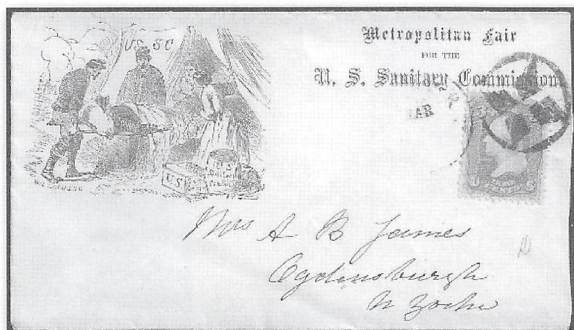 Metropolitan Fair
FOR THE
U. S. Sanitary Commission
US SC
AR
U.S
Mrs A B James
Ogdensburgh
N Yorke